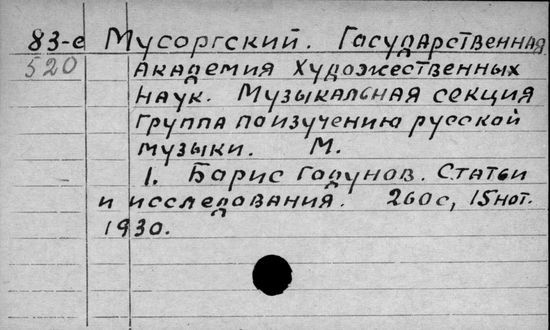 83-е Мусоргский. Государственная
520 Академия Художественных
Наук. Музыкальная секция
Группа по изучению русской
музыки. М.
1. Борис Годунов. Статьи
и исследования. 260с, 15 нот.
1930.